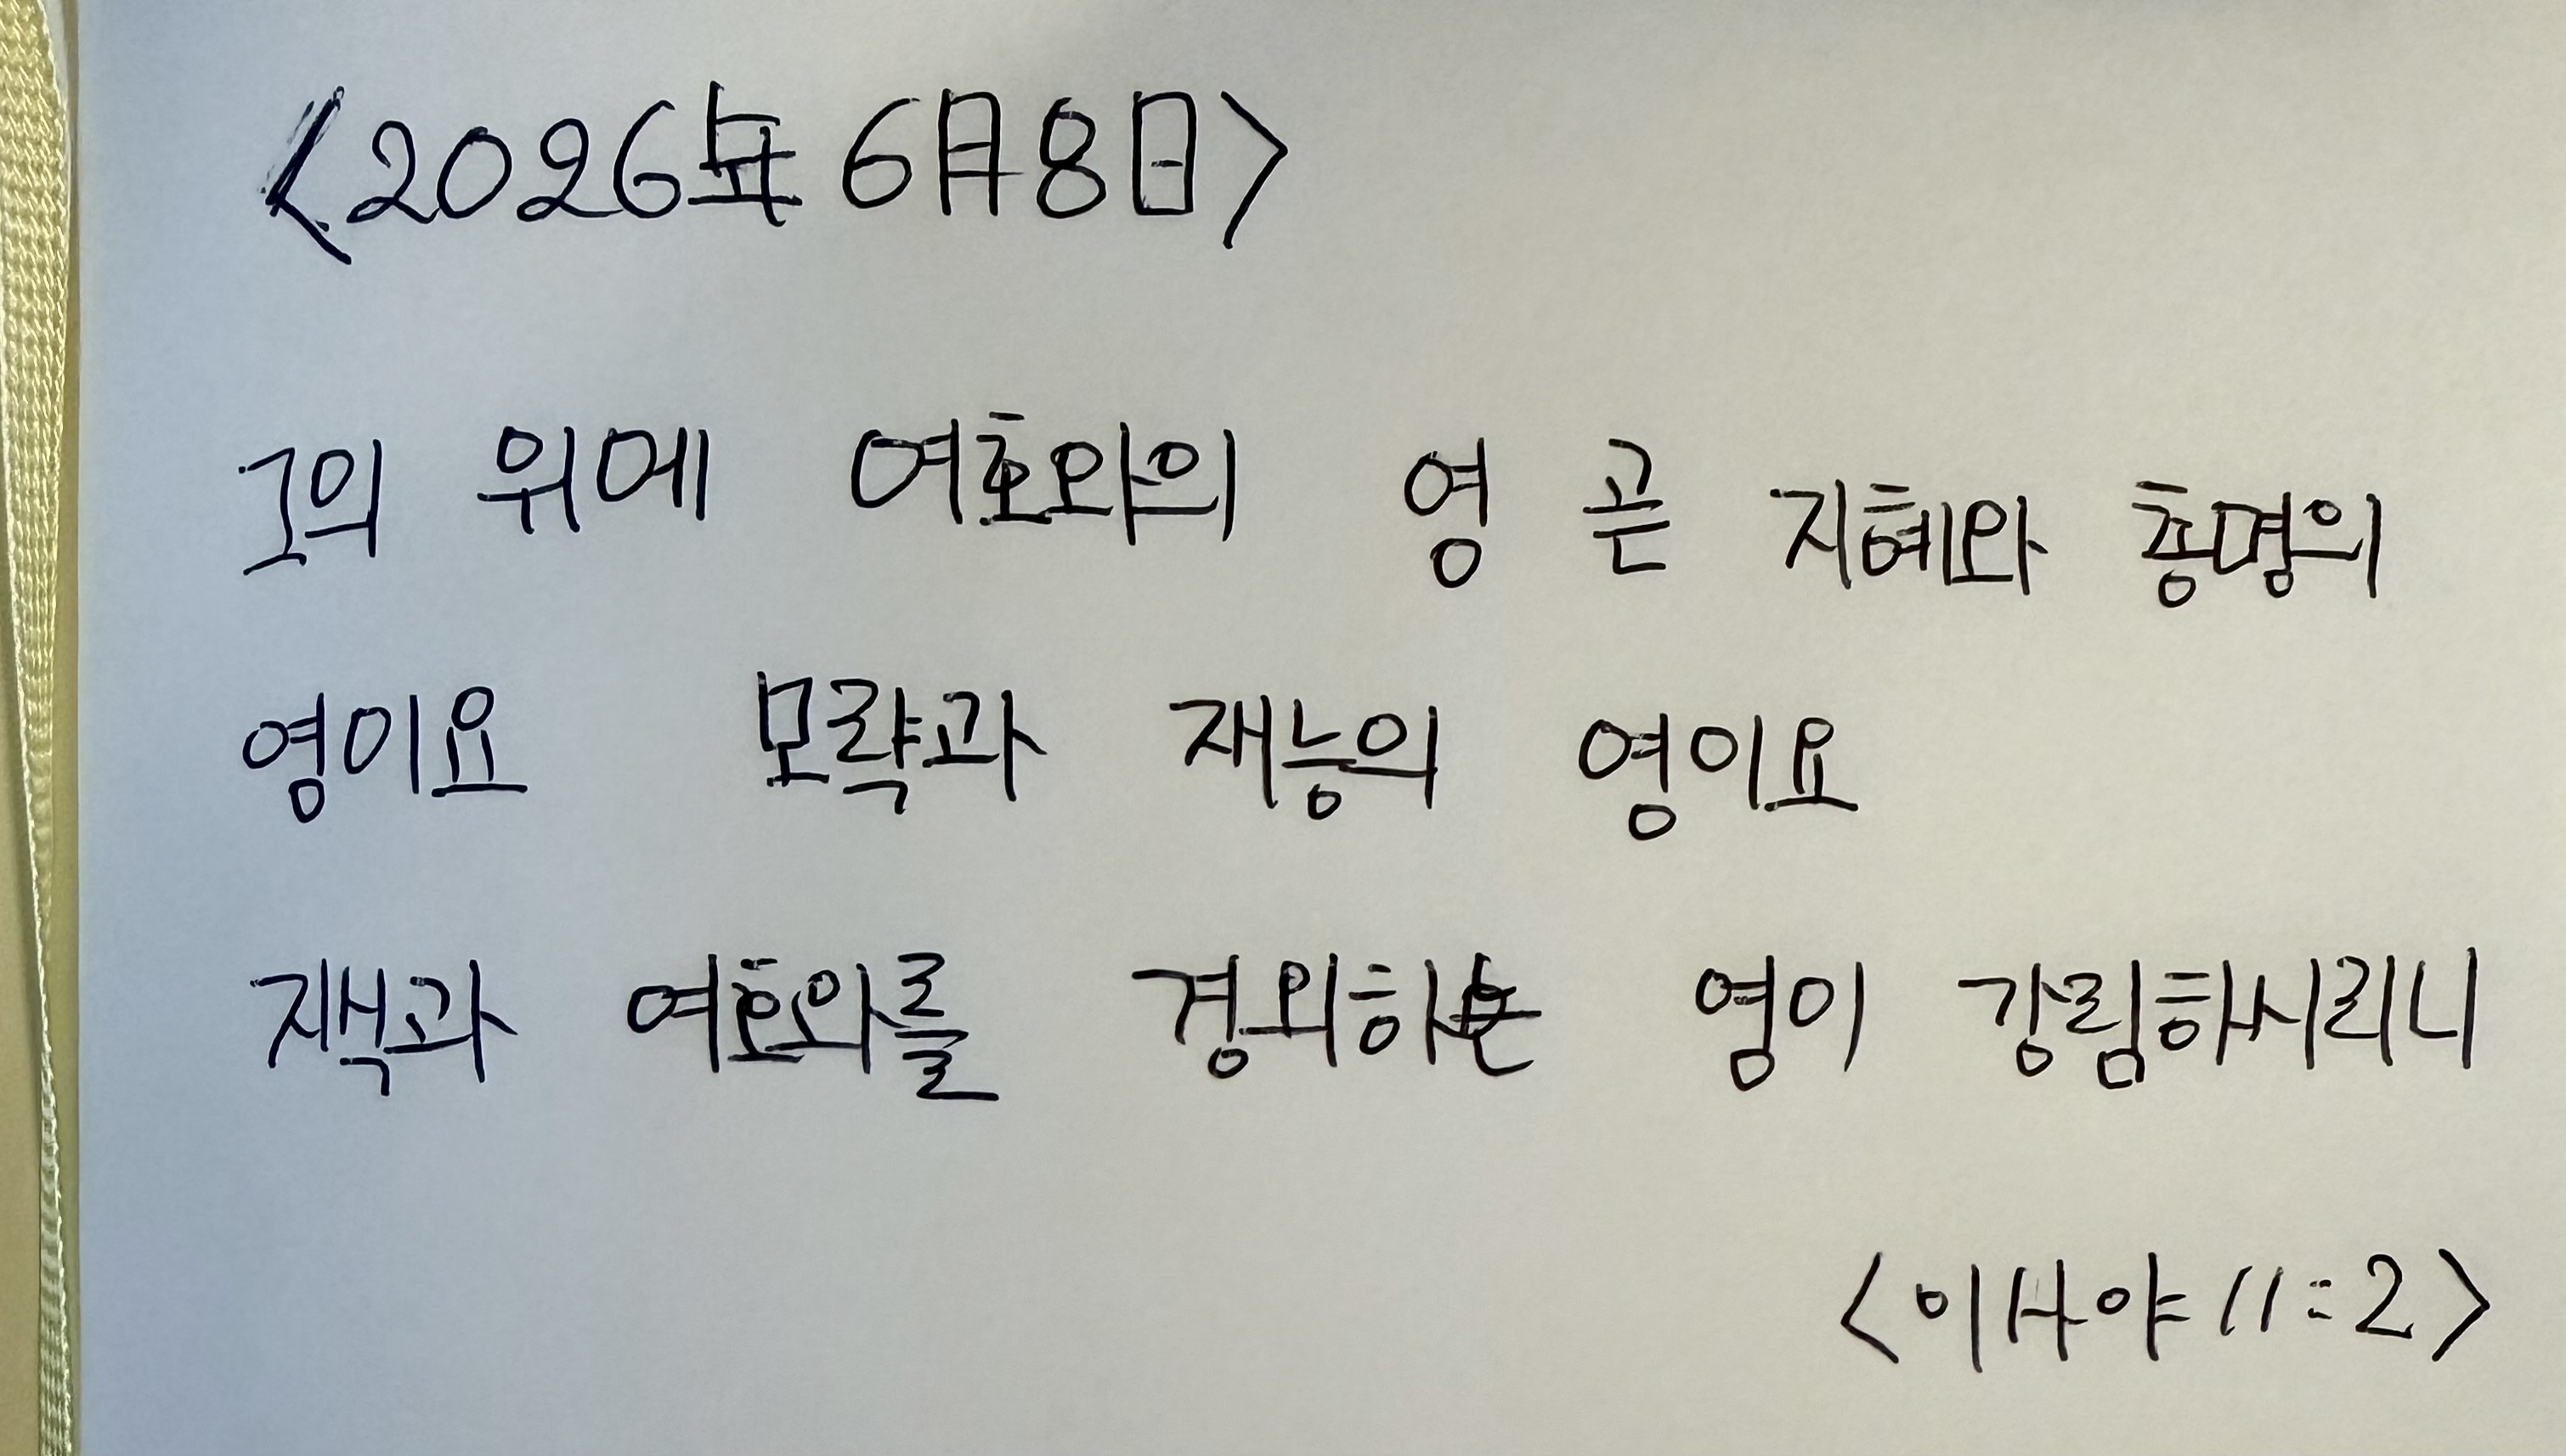 <2026年 6月8日>
그의 위에 여호와의 영 곧 지혜와 총명의
영이요 모략과 재능의 영이요
지식과 여호와를 경외하는 영이 강림하시리니
<이사야 11:2>